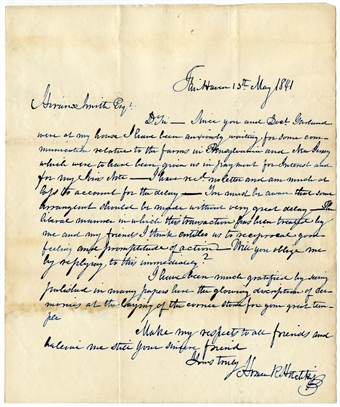 Fair Haven 13th May 1841
Smith Esqr.
Dr Sir — Since you and Doct Garland
were at my house I have been anxiously waiting for some com-
munication relative to the farms in Pensylvania and New Jersey
which were to have been given us in payment for Interest and
for my Note — I have recd no letter and am much at
to account for the delay — You must be aware that some
arrangment should be made without very great delay — The
liberal manner in which this transaction has been treated by
me and my friend I think entitles us to reciprocal good
feeling and promptitude of action — Will you oblige me
by replying to this immediately?
I have been much gratified by seeing
published in many papers here the glowing description of cere-
monies at the laying of the corner stone for your great tem-
ple
Make my respects to all friends and
believe me still your sincere friend
Yours truly
Horace R Hotchkiss